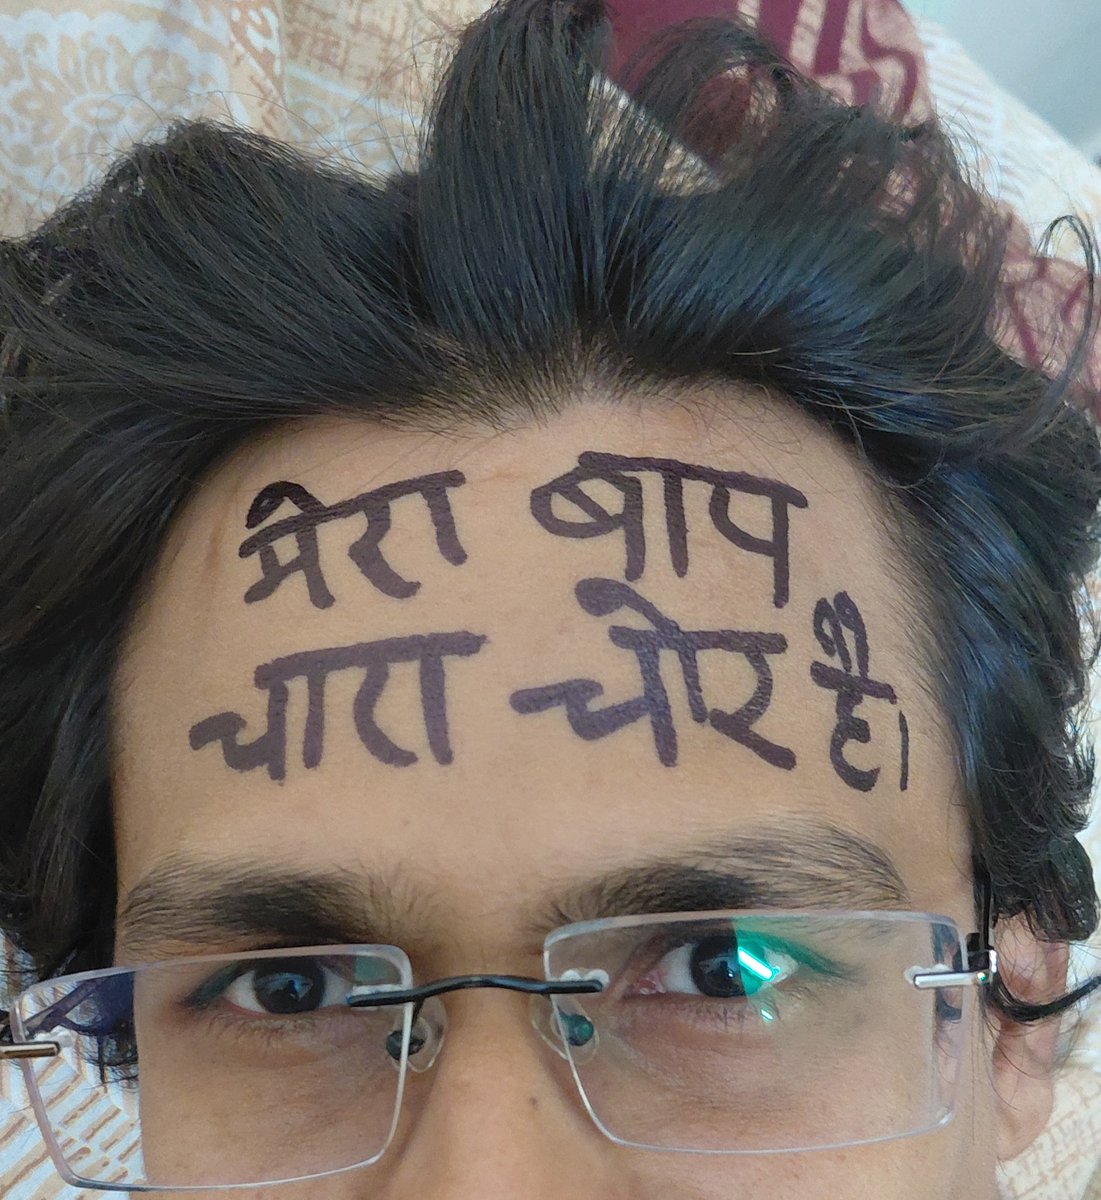 मेरा बाप
चारा चोर है।